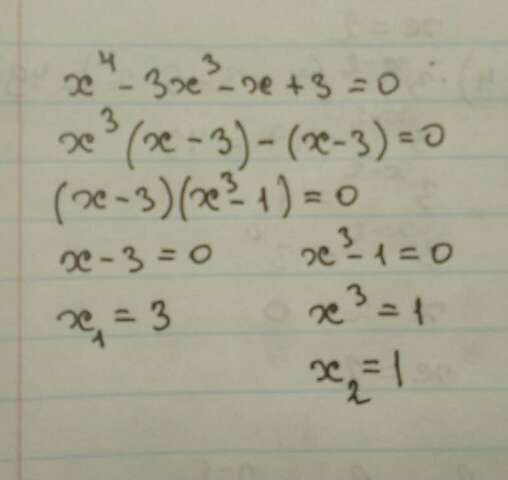 x⁴ - 3x³ - x + 3 = 0
x³(x - 3) - (x - 3) = 0
(x - 3)(x³ - 1) = 0
x - 3 = 0 x³ - 1 = 0
x₁ = 3 x³ = 1
x₂ = 1